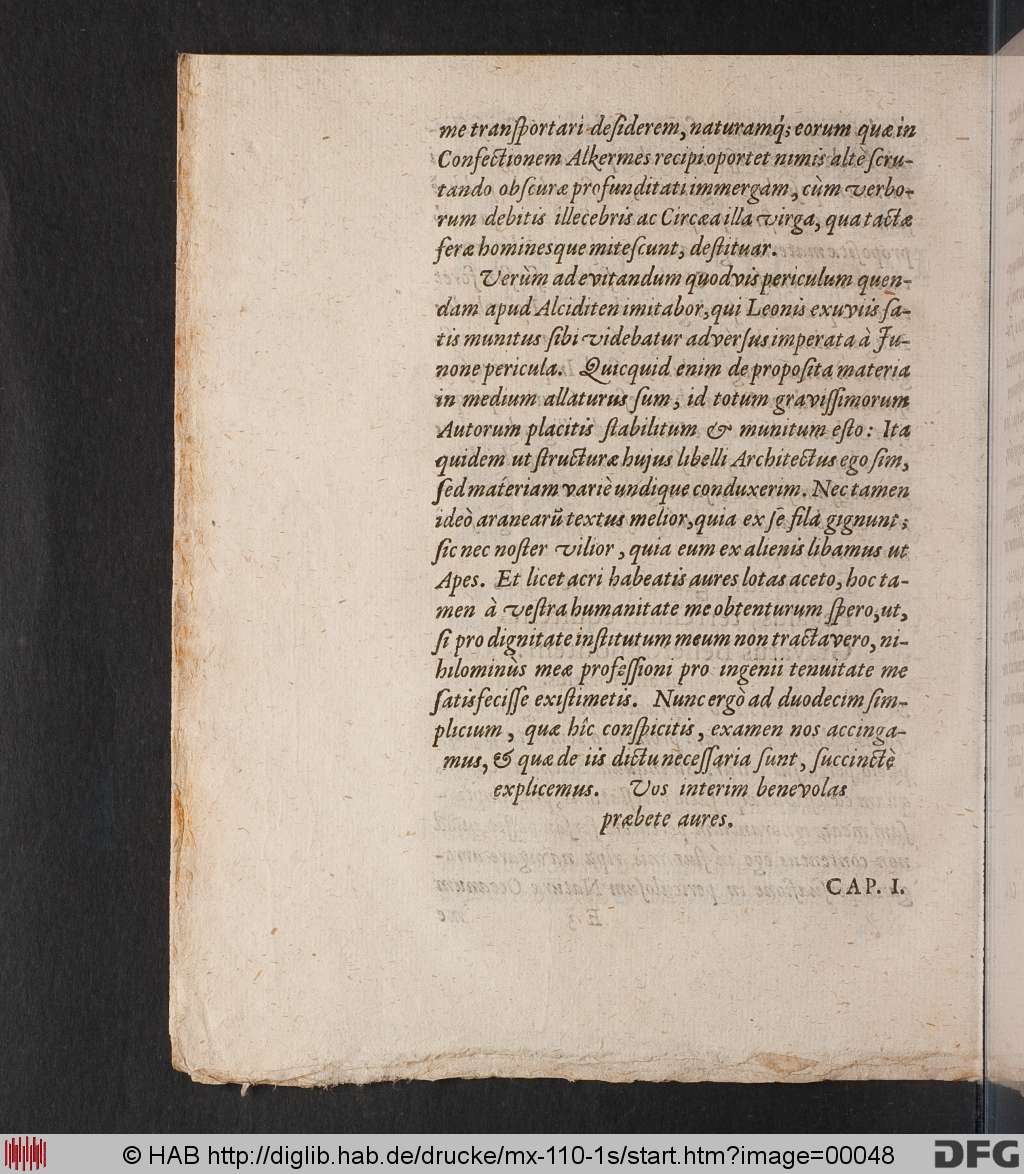 me transſportari deſiderem, naturamq́; eorum quæ in
Confectionem Alkermes recipi oportet nimis altè ſcru-
tando obſcuræ profunditati immergam, cùm verbo-
rum debitis illecebris ac Circæa illa virga, qua tactæ
feræ hominesque miteſcunt, deſtituar.
Verùm ad evitandum quodvis periculum quen-
dam apud Alciditen imitabor, qui Leonis exuviis ſa-
tis munitus ſibi videbatur adverſus imperata à Ju-
none pericula. Quicquid enim de propoſita materia
in medium allaturus ſum, id totum graviſſimorum
Autorum placitis ſtabilitum & munitum eſto: Ita
quidem ut ſtructuræ hujus libelli Architectus ego ſim,
ſed materiam variè undique conduxerim. Nec tamen
ideò aranearū textus melior, quia ex ſe fila gignunt;
ſic nec noſter vilior, quia eum ex alienis libamus ut
Apes. Et licet acri habeatis aures lotas aceto, hoc ta-
men à veſtra humanitate me obtenturum ſpero, ut,
ſi pro dignitate inſtitutum meum non tractavero, ni-
hilominùs meæ profeſſioni pro ingenii tenuitate me
ſatisfeciſſe exiſtimetis. Nunc ergò ad duodecim ſim-
plicium, quæ hîc conſpicitis, examen nos accinga-
mus, & quæ de iis dictu neceſſaria ſunt, ſuccinctè
explicemus. Vos interim benevolas
præbete aures.
CAP. I.
© HAB http://diglib.hab.de/drucke/mx-110-1s/start.htm?image=00048
DFG